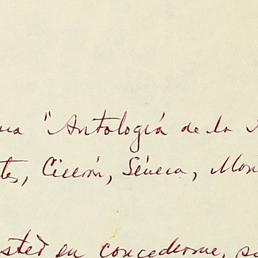 una "Antología de la
tes, Cicerón, Séneca, Mon
usted en concederme, su